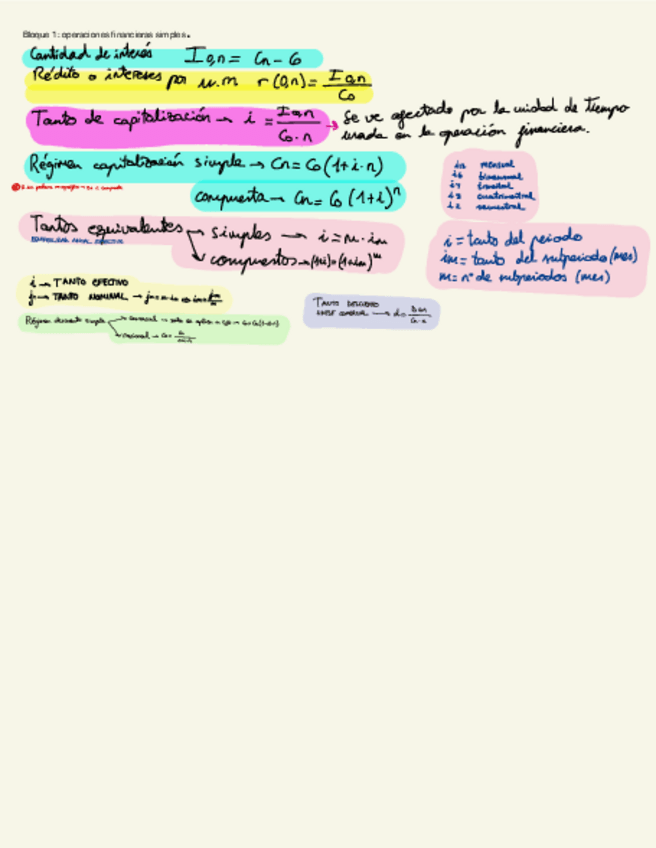 Bloque 1: operaciones financieras simples.
Cantidad de interés I0,n = Cn - C0
Rédito o intereses por u.m r(0,n) = I0,n / C0
Tanto de capitalización → i = I0,n / C0·n → Se ve afectado por la unidad de tiempo
usada en la operación financiera.
Régimen capitalización simple → Cn = C0(1+i·n)
compuesta → Cn = C0(1+i)^n
i12 mensual
i6 bimensual
i4 trimestral
i3 cuatrimestral
i2 semestral
Tantos equivalentes → simples → i = m·im
compuestos → (1+i) = (1+im)^m
i = tanto del periodo
im = tanto del subperiodo (mes)
m = nº de subperiodos (mes)
i → TANTO EFECTIVO
jm → TANTO NOMINAL → jm = m·im
TANTO DESCUENTO
Régimen descuento simple → comercial
racional